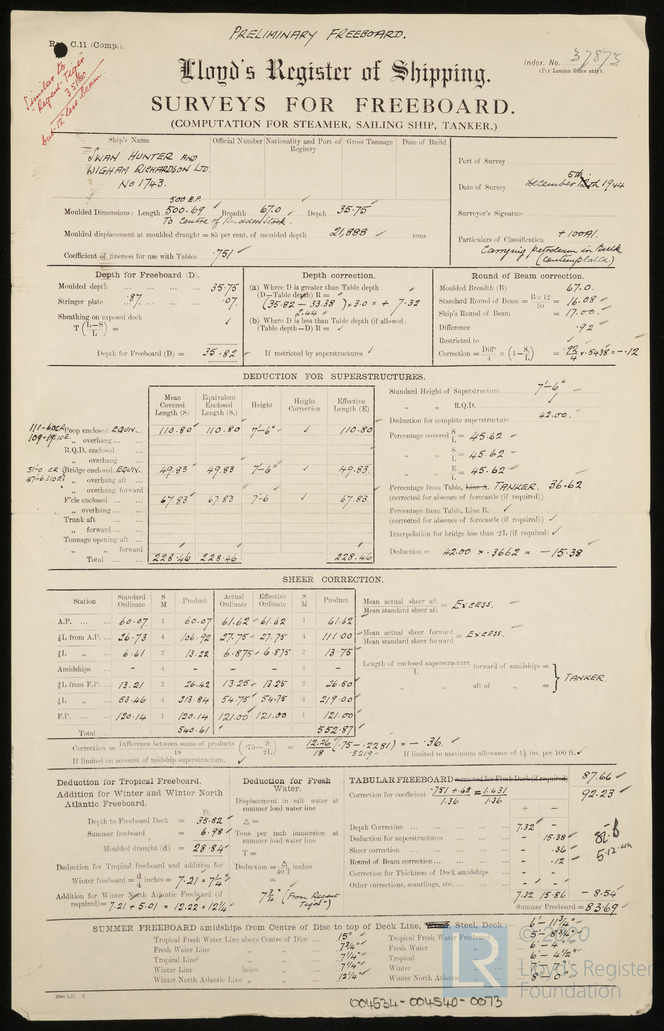 PRELIMINARY FREEBOARD.
C.11 (Comp.).
Index. No. 37873
(For London Office only).
Similar to
Regent Tiger
35180
but 12" less beam.
Lloyd's Register of Shipping.
SURVEYS FOR FREEBOARD.
(COMPUTATION FOR STEAMER, SAILING SHIP, TANKER.)
Ship's Name Official Number Nationality and Port of Registry Gross Tonnage Date of Build
SWAN HUNTER AND
WIGHAM RICHARDSON LTD.
No 1743.
Port of Survey
Date of Survey December 5th 1944
Surveyor's Signature
Particulars of Classification +100A1.
Carrying petroleum in Bulk
(contemplated)
500 B.P.
Moulded Dimensions: Length 500.69 Breadth 67.0 Depth 35.75
To centre of Rudder Stock.
Moulded displacement at moulded draught = 85 per cent. of moulded depth 21,888 tons
Coefficient of fineness for use with Tables .751
Depth for Freeboard (D).
Moulded depth 35.75
Stringer plate .87 .07
Sheathing on exposed deck
T (L-S/L) =
Depth for Freeboard (D) = 35.82
Depth correction.
(a) Where D is greater than Table depth
(D—Table depth) R =
(35.82 - 33.38) × 3.0 = + 7.32
2.44
(b) Where D is less than Table depth (if allowed)
(Table depth—D) R =
If restricted by superstructures
Round of Beam correction.
Moulded Breadth (B) 67.0.
Standard Round of Beam = B×12/50 = 16.08
Ship's Round of Beam = 17.00
Difference .92
Restricted to
Correction = Diff/4 × (1-S1/L) = .92/4 × .5438 = -.12
DEDUCTION FOR SUPERSTRUCTURES.
Mean Covered Length (S) Equivalent Enclosed Length (S1) Height Height Correction Effective Length (E)
Poop enclosed EQUIV. 110.80 110.80 7'-6" 110.80
„ overhang
R.Q.D. enclosed
„ overhang
Bridge enclosed EQUIV. 49.83 49.83 7'-6" 49.83
„ overhang aft
„ overhang forward
F'cle enclosed 67.83 67.83 7-6 67.83
„ overhang
Trunk aft
„ forward
Tonnage opening aft
„ „ forward
Total 228.46 228.46 228.46
Standard Height of Superstructure 7'-6"
„ „ R.Q.D.
Deduction for complete superstructure 42.00.
Percentage covered S/L = 45.62
„ „ S1/L = 45.62
„ „ E/L = 45.62
Percentage from Table, Line A. TANKER. 36.62
(corrected for absence of forecastle (if required))
Percentage from Table, Line B.
(corrected for absence of forecastle (if required))
Interpolation for bridge less than .2L (if required)
Deduction = 42.00 × .3662 = -15.38
SHEER CORRECTION.
Station Standard Ordinate S M Product Actual Ordinate Effective Ordinate S M Product
A.P. 60.07 1 60.07 61.62 61.62 1 61.62
⅙L from A.P. 26.73 4 106.92 27.75 27.75 4 111.00
⅓L „ 6.61 2 13.22 6.875 6.875 2 13.75
Amidships - 4 - - - 4 -
⅓L from F.P. 13.21 2 26.42 13.25 13.25 2 26.50
⅙L „ 53.46 4 213.84 54.75 54.75 4 219.00
F.P. 120.14 1 120.14 121.00 121.00 1 121.00
Total 540.61 552.87
Mean actual sheer aft / Mean standard sheer aft = Excess.
Mean actual sheer forward / Mean standard sheer forward = Excess.
Length of enclosed superstructure forward of amidships =
L
„ aft of „ =
TANKER
Correction = Difference between sums of products/18 (.75 - S/2L) = 12.26/18 (.75 - .2281) = -.36.
.5219
If limited on account of midship superstructure.
If limited to maximum allowance of 1½ ins. per 100 ft.
Deduction for Tropical Freeboard.
Addition for Winter and Winter North Atlantic Freeboard.
Ft
Depth to Freeboard Deck = 35.82
Summer freeboard = 6.98
Moulded draught (d) = 28.84
Deduction for Tropical freeboard and addition for
Winter freeboard = d/4 inches = 7.21 = 7¼"
Addition for Winter North Atlantic Freeboard (if
required) = 7.21 + 5.01 = 12.22 = 12¼"
Deduction for Fresh Water.
Displacement in salt water at summer load water line
Δ =
Tons per inch immersion at summer load water line
T =
Deduction = Δ/40 T inches
=
7¾" (From Regent Tiger")
TABULAR FREEBOARD corrected for Flush Deck (if required) 87.66
Correction for coefficient .751 + .68/1.36 = 1.431/1.36 92.23
+ -
Depth Correction 7.32 -
Deduction for superstructures - 15.38
Sheer correction - .36
Round of Beam correction - .12
Correction for Thickness of Deck amidships - -
Other corrections, scantlings, etc. - -
7.32 15.86 -8.54
Summer Freeboard = 83.69
SUMMER FREEBOARD amidships from Centre of Disc to top of Deck Line, Steel, Deck: 6'- 11¾"
Tropical Fresh Water Line above Centre of Disc 15"
Fresh Water Line „ „ 7¾"
Tropical Line „ „ 7¼"
Winter Line below „ 7¼"
Winter North Atlantic Line „ „ 12¼"
Tropical Fresh Water Freeboard 5'- 8¾"
Fresh Water „ 6'- 4"
Tropical „ 6'- 4½"
Winter „ 7'- 7"
Winter North Atlantic „ 8'- 0"
© 2020
LR
Lloyd's Register
Foundation
004534-004540-0073